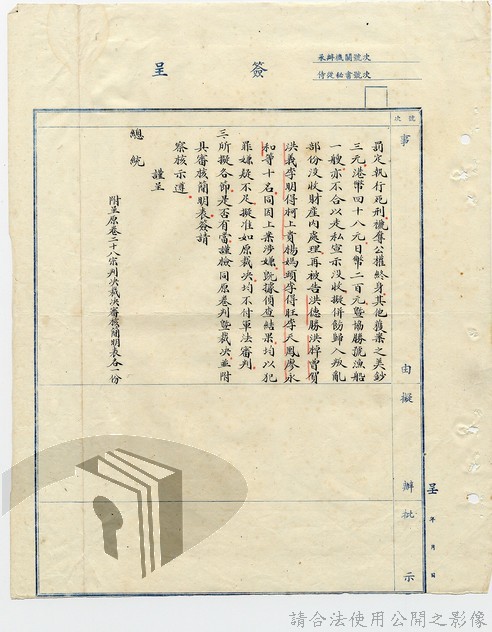 簽呈
承辦機關號次
侍從秘書號次
號次
事由擬辦批示
呈 年 月 日
罰定執行死刑褫奪公權終身其他獲案之美鈔
三元港幣四十八元日幣二百元暨協勝號漁船
一艘亦不合以走私宣示沒收擬併飭歸入叛亂
部份沒收財產內處理再被告洪德勝洪掉曾賀
洪義李明得柯上貴楊媽頭李得旺李天鳳廖永
和等十名同因上案涉嫌既據偵查結果均以犯
罪嫌疑不足擬准如原裁決均不付軍法審判
三、所擬各節是否有當謹檢同原卷判暨裁決並附
具審核簡明表簽請
察核示遵
謹呈
總統
附呈原卷二十八宗判決裁決審核簡明表各一份
請合法使用公開之影像